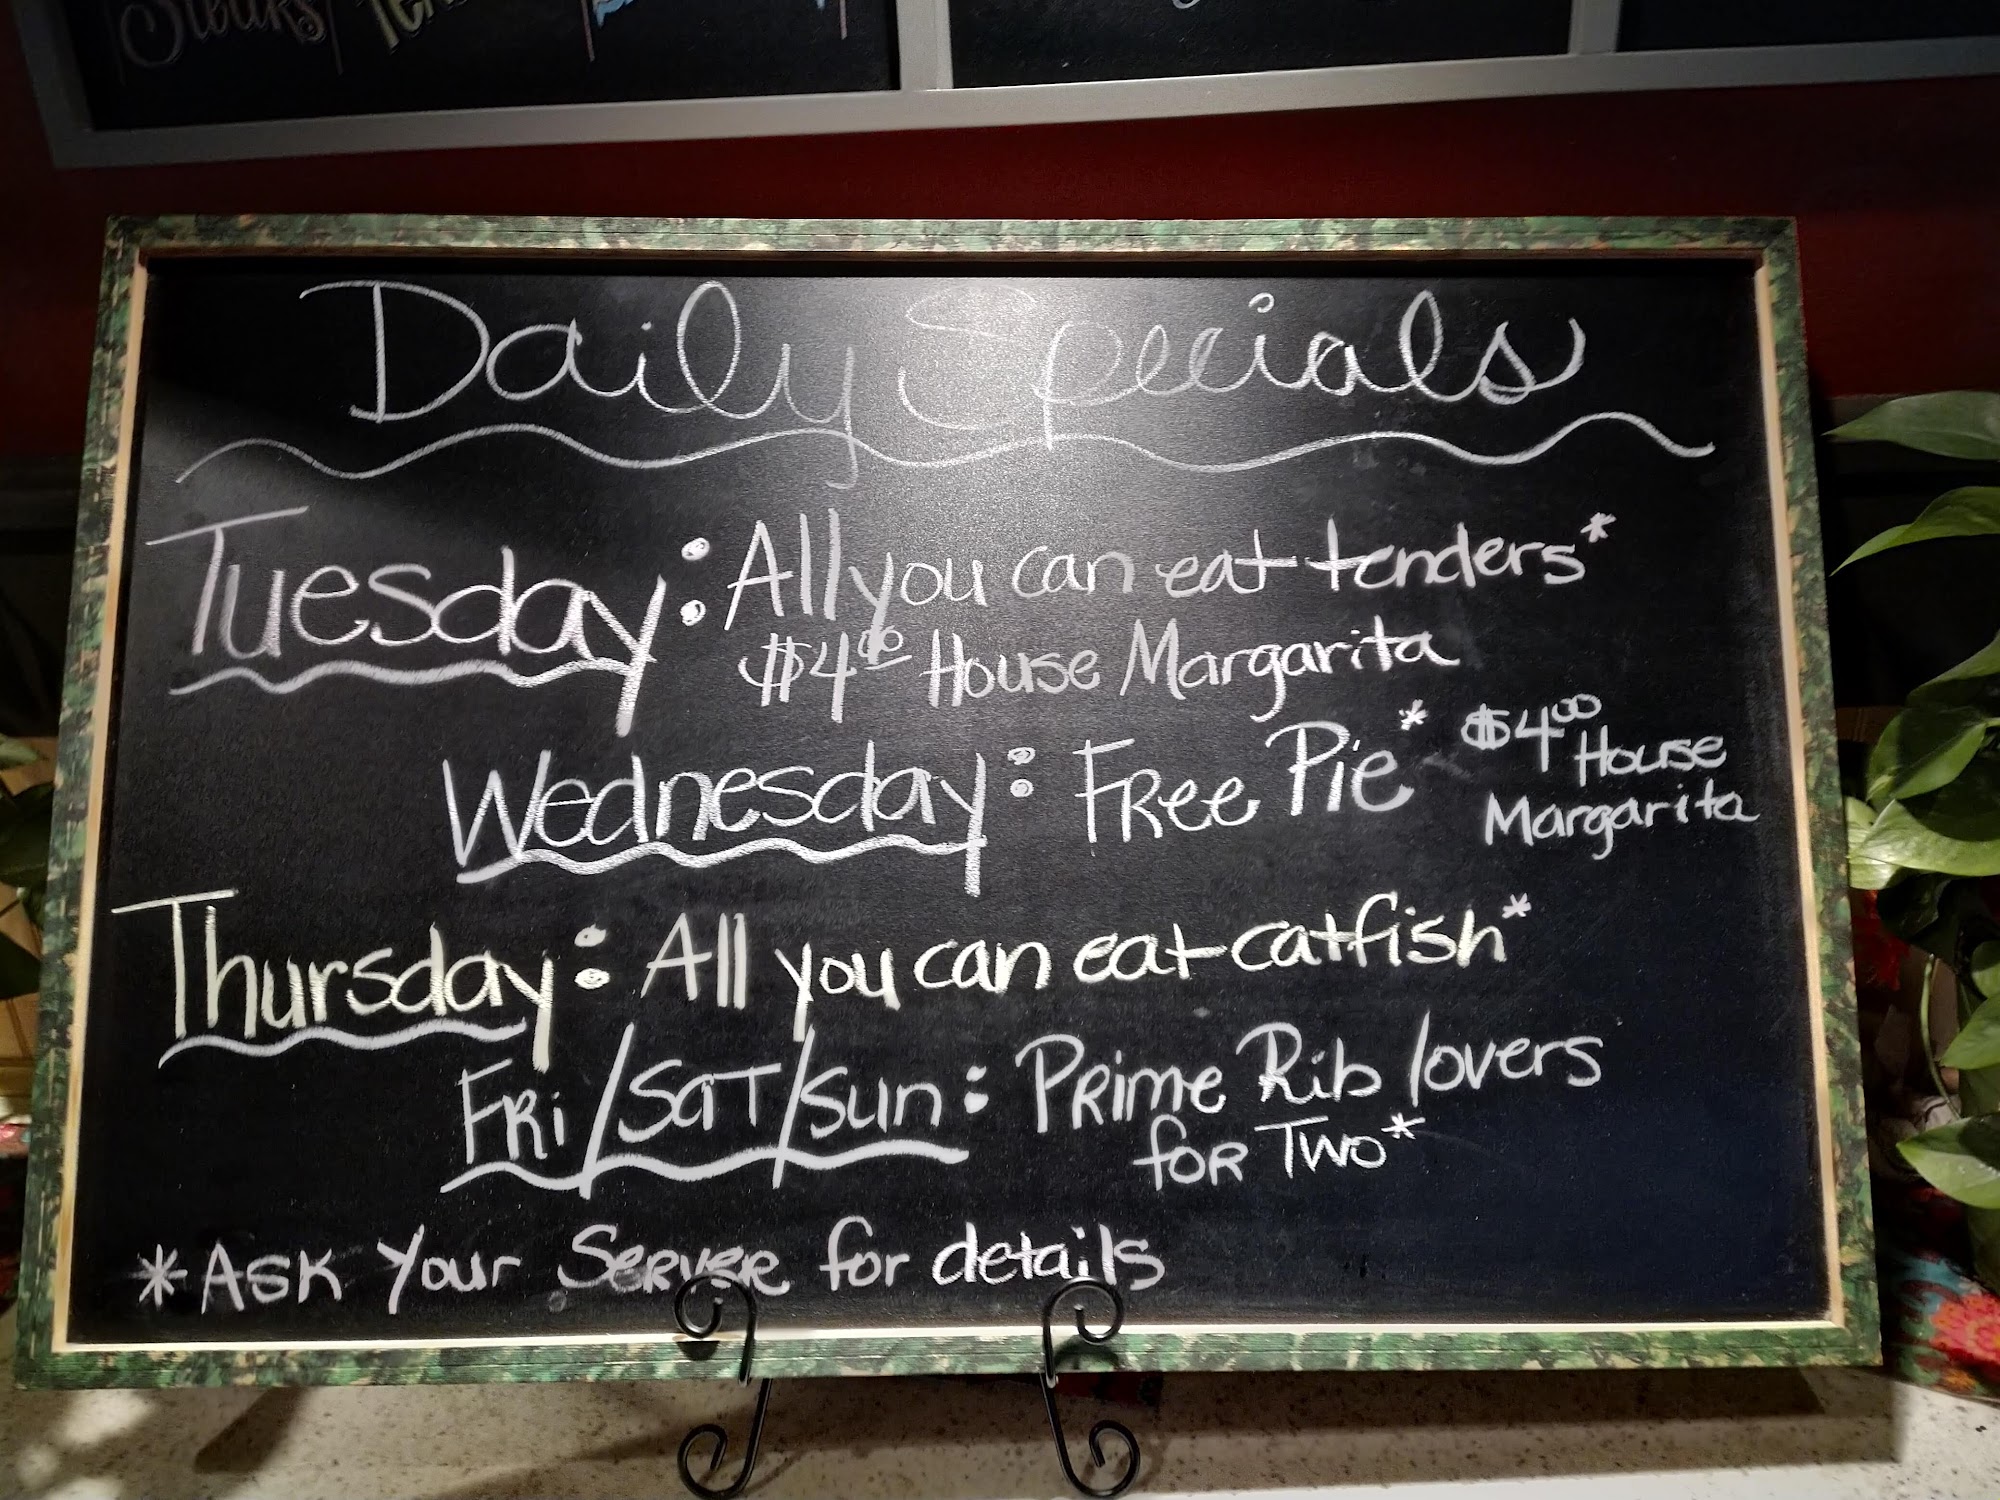 Steaks
Daily Specials
Tuesday: All you can eat tenders*
$4.00 House Margarita
Wednesday: FRee Pie* $4.00 House
Margarita
Thursday: All you can eat catfish*
FRi/SaT/Sun: PRime Rib lovers
foR Two*
*ASK Your SeRVeR for details